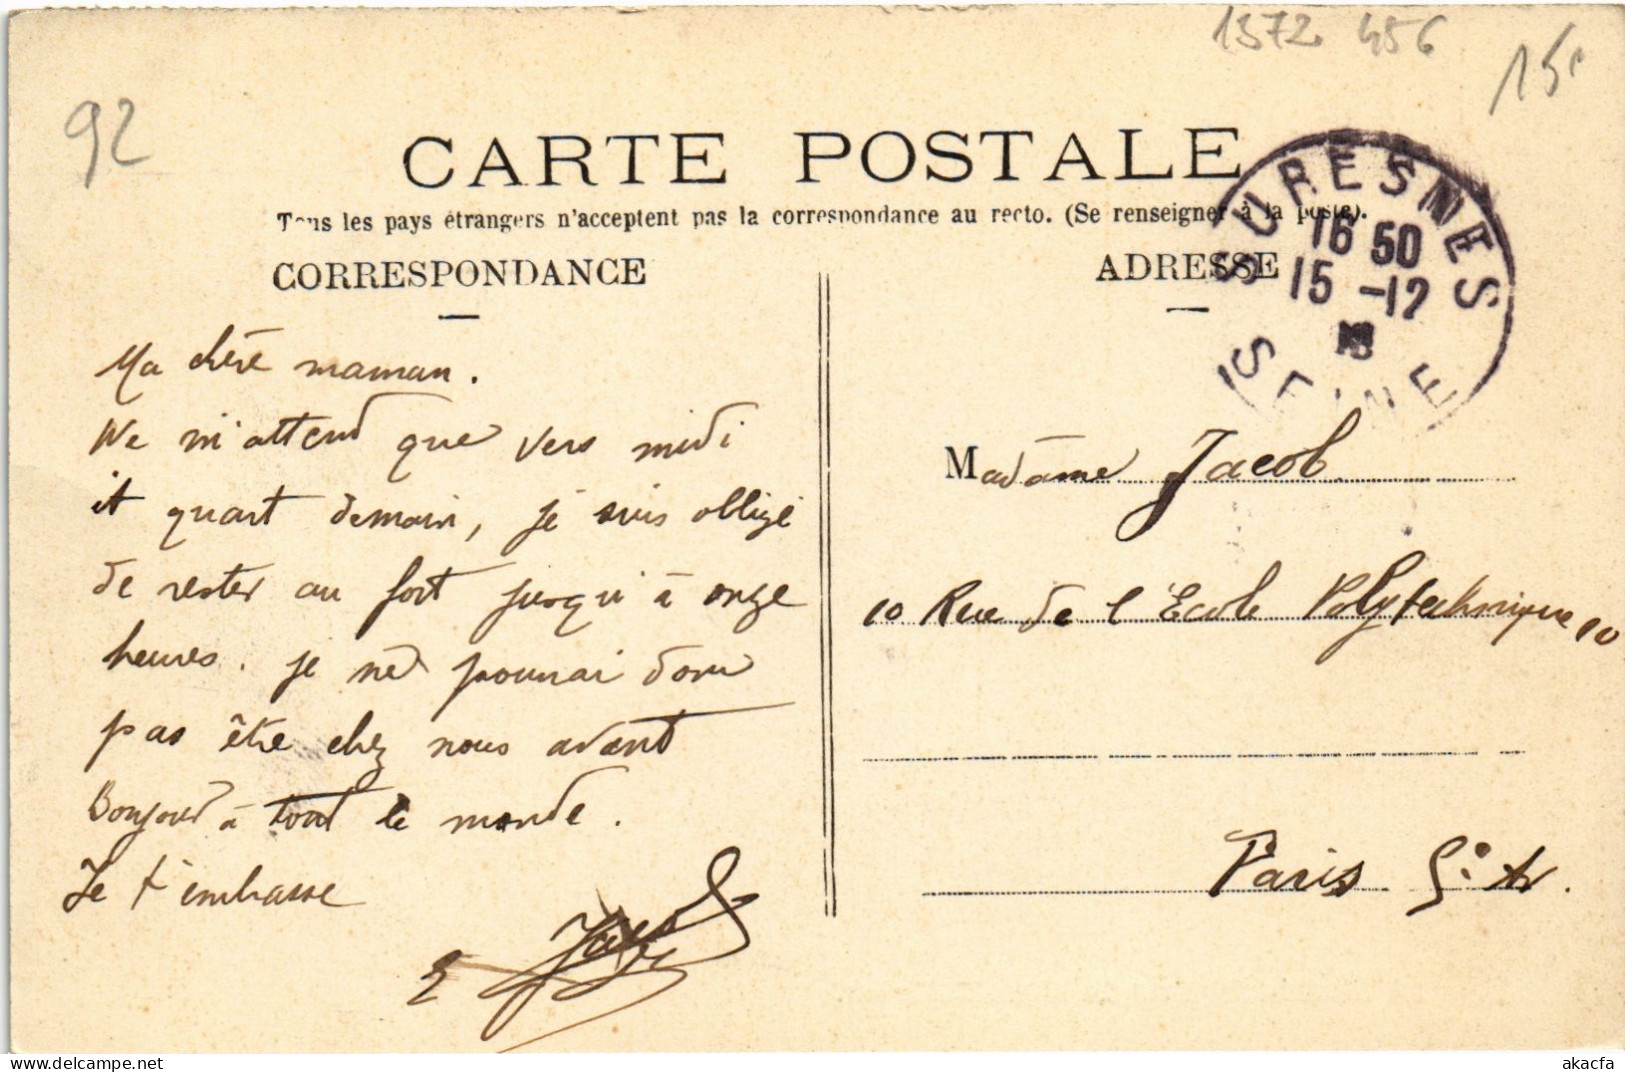 1372 456
15c
92
CARTE POSTALE
Tous les pays étrangers n'acceptent pas la correspondance au recto. (Se renseigner à la poste).
SURESNES
16 50
15 -12
SEINE
CORRESPONDANCE
ADRESSE
Ma chère maman.
Ne m'attend que vers midi
et quart demain, je suis obligé
de rester au fort jusqu'à onze
heures. je ne pourrai donc
pas être chez nous avant
Bonjour à tout le monde.
Je t'embrasse
E Jacob
Madame Jacob
10 Rue de l'Ecole Polytechnique 10
Paris 5e Ar.
akacfa